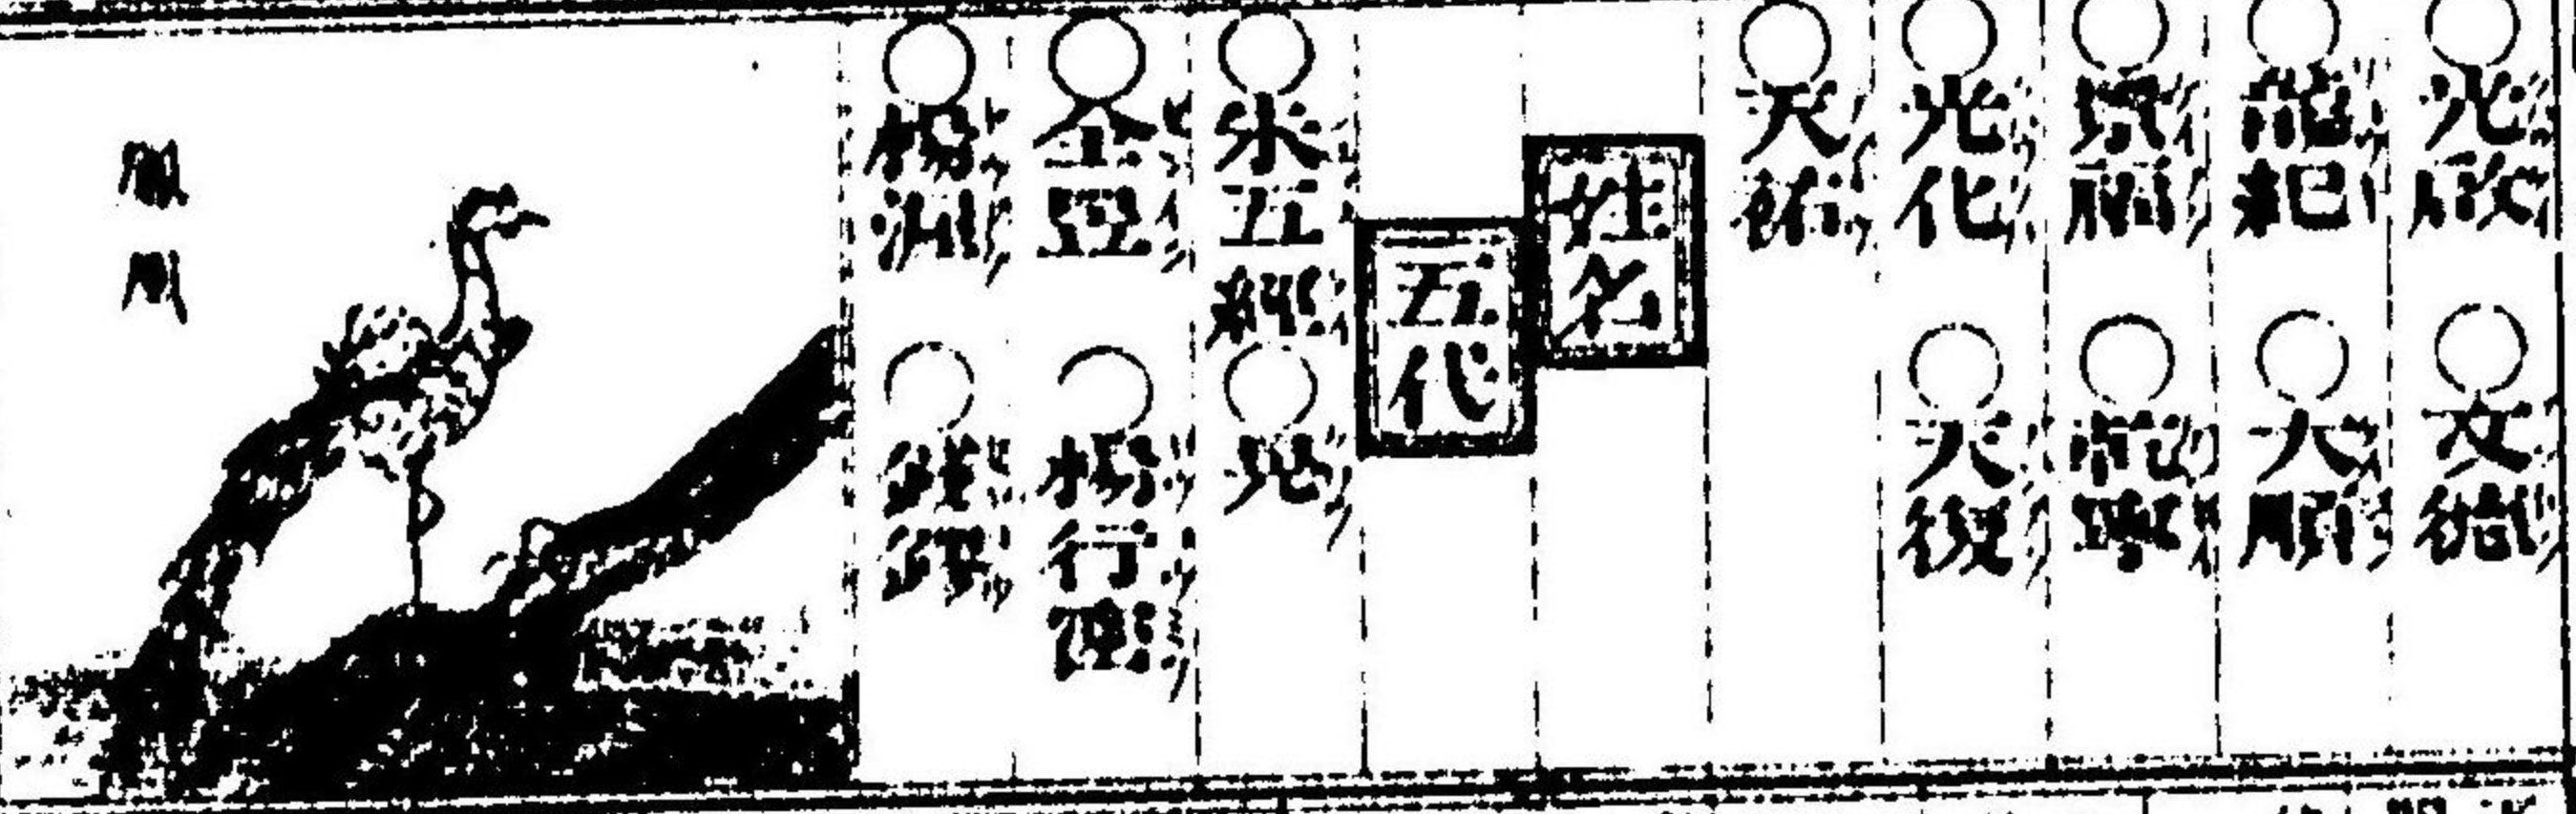 光啓
文德
龍紀
大順
景福
乾寧
光化
天復
天祐
姓名
五代
朱五經
全昱
楊行密
錢鏐